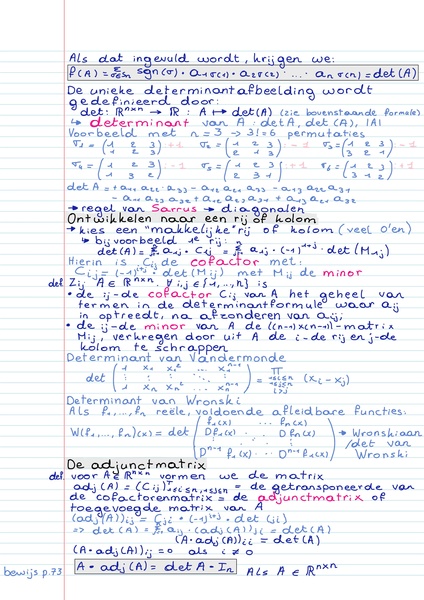 Als dat ingevuld wordt, krijgen we:
f(A) = Σ_{σ∈Sn} sgn(σ) · a_{1σ(1)} · a_{2σ(2)} · ... · a_{nσ(n)} = det(A)
De unieke determinantafbeelding wordt
gedefinieerd door:
det: ℝ^{n×n} → ℝ : A ↦ det(A) (zie bovenstaande formule)
↳ determinant van A : det A, det(A), |A|
Voorbeeld met n = 3 → 3! = 6 permutaties
σ1 = (1 2 3 / 1 2 3) +1 σ2 = (1 2 3
σ3 = (1 2 3
σ4 = (1 2 3
σ5 = (1 2 3
σ6 = (1 2 3
det A = + a11 a22 a33 - a11
→ regel van Sarrus → diagonalen
Ontwikkelen naar een rij of kolom
→ kies een "makkelijke" rij of kolom (veel 0'en)
↳ bij voorbeeld 1e rij:
det(A) = Σ a1j · C1j = Σ a1j · (-1)^{1+j} · det(M1j)
Hierin is Cij de cofactor met:
Cij = (-1)^{i+j} · det(Mij) met Mij de minor
def Zij A ∈ ℝ^{n×n}. ∀ i,j ∈ {1,...,n} is
• de ij-de cofactor Cij van A het geheel van
termen in de determinantformule waar aij
in optreedt, na afzonderen van aij;
• de ij-de minor van A de ((n-1)×(n-1))-matrix
Mij, verkregen door uit A de i-de rij en j-de
kolom te schrappen
Determinant van Vandermonde
det (1 x1 x1² ... x1^{n-1}
⋮ ⋮ ⋮ ⋮
1 xn xn² ... xn^{n-1}) = Π (xi - xj)
Determinant van Wronski
Als f1,..., fn reële, voldoende afleidbare functies:
W(f1,...,fn)(x) = det (f1(x) ... fn(x)
Df1(x) ... Dfn(x)
D^{n-1}f1(x) ... D^{n-1}fn(x)) → Wronskiaan
/det van
Wronski
De adjunctmatrix
def voor A ∈ ℝ^{n×n} noemen we de matrix
adj(A) = (Cij)^T_{1≤i≤n, 1≤j≤n} = de getransponeerde van
de cofactorenmatrix = de adjunctmatrix of
toegevoegde matrix van A
(adj(A))ij = Cji = (-1)^{i+j} · det (
=> det(A) = Σ aij · (adj(A))ji = det(A)
(A · adj(A))ii = det(A)
(A · adj(A))ij = 0 als i ≠ j
bewijs p.73 A · adj(A) = det A · In Als A ∈ ℝ^{n×n}